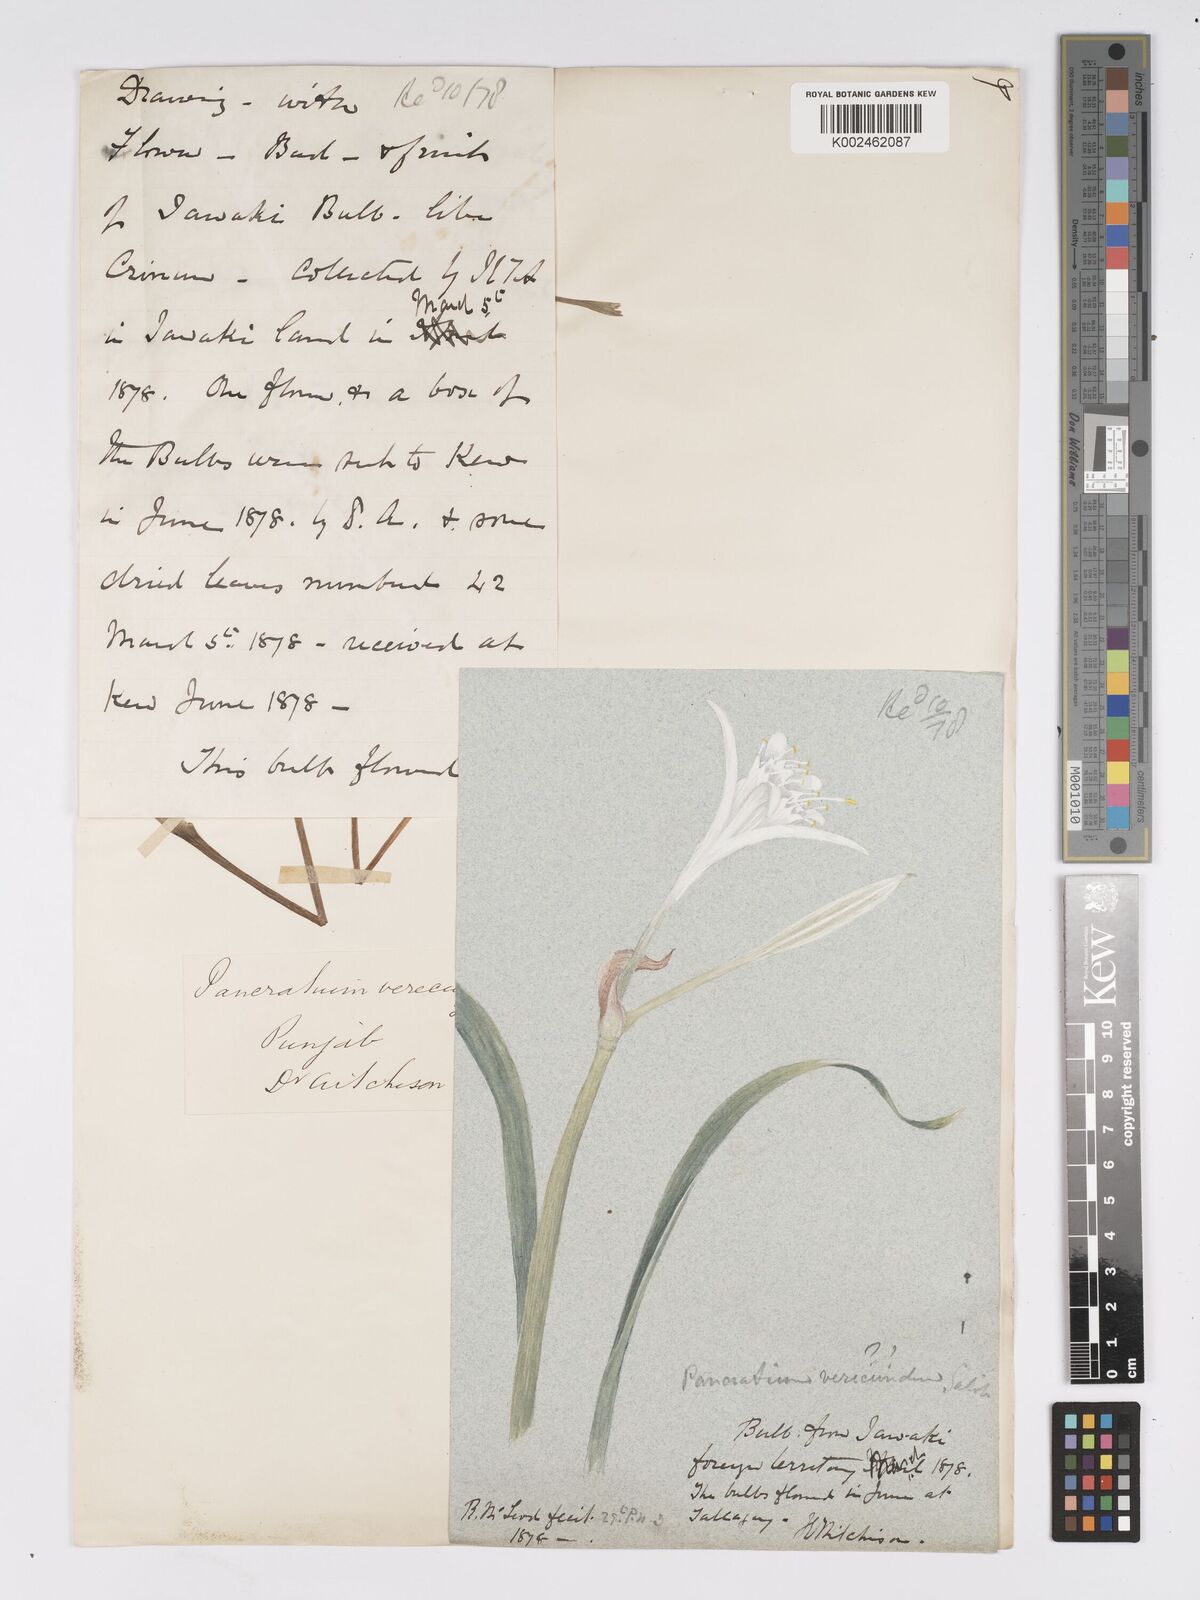 Drawing - with Recd 10/78
Flower - Bud - & fruit
of Jawaki Bulb - like
Crinum - Collected by JETA
March 5th
in Jawaki land in
1878. One flower, & a box of
the Bulbs were sent to Kew
in June 1878. by S. A. & some
dried leaves numbered 42
March 5th 1878 - received at
Kew June 1878 -
This bulb flowered
ROYAL BOTANIC GARDENS KEW
K002462087
Recd 10/78
Pancratium verecu
Punjab
Dr Aitchison
? ?
Pancratium verecundum, Salib
Bulb from Jawaki
foreign territory 1878.
The bulbs flowered in June at
Tallagay - Aitchison.
R. McLeod fecit.
1878 -
Density
Don Williams
M001010
centimeters
Kew
copyright reserved
0 1 2 3 4 5 6 7 8 9 10
cm